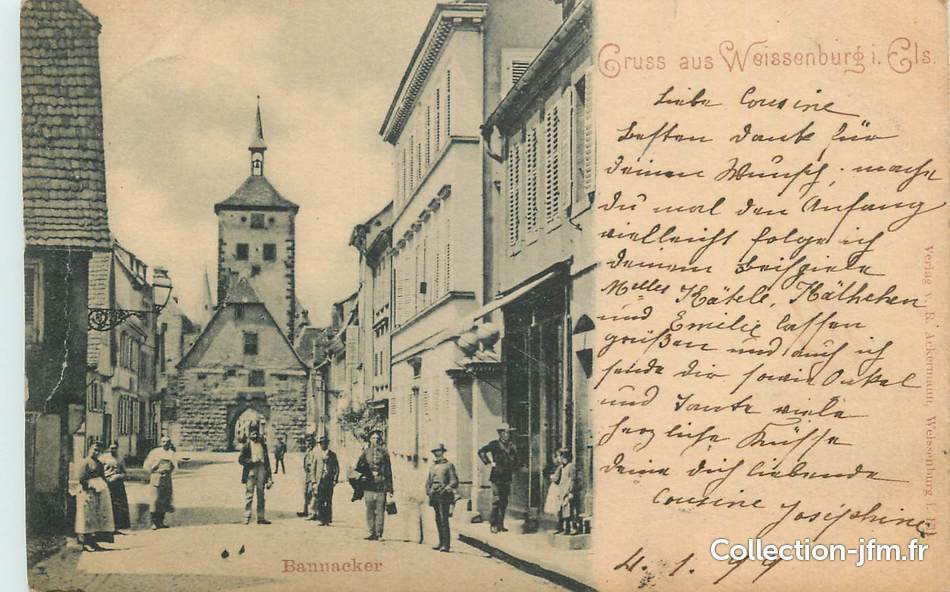 Gruss aus Weissenburg i. Els.
Liebe Cousine
Besten Dank für
deinen Wunsch, mache
du mal den Anfang
vielleicht folge ich
deinem Beispiele
Melles Kätele, Käthchen
und Emilie lassen
grüßen und auch ich
sende dir sowie Onkel
und Tante viele
herzliche Küsse
deine dich liebende
Cousine Josephine
4. 1. 99
Bannacker
Verlag v. R. Ackermann, Weissenburg i. Els.
Collection-jfm.fr